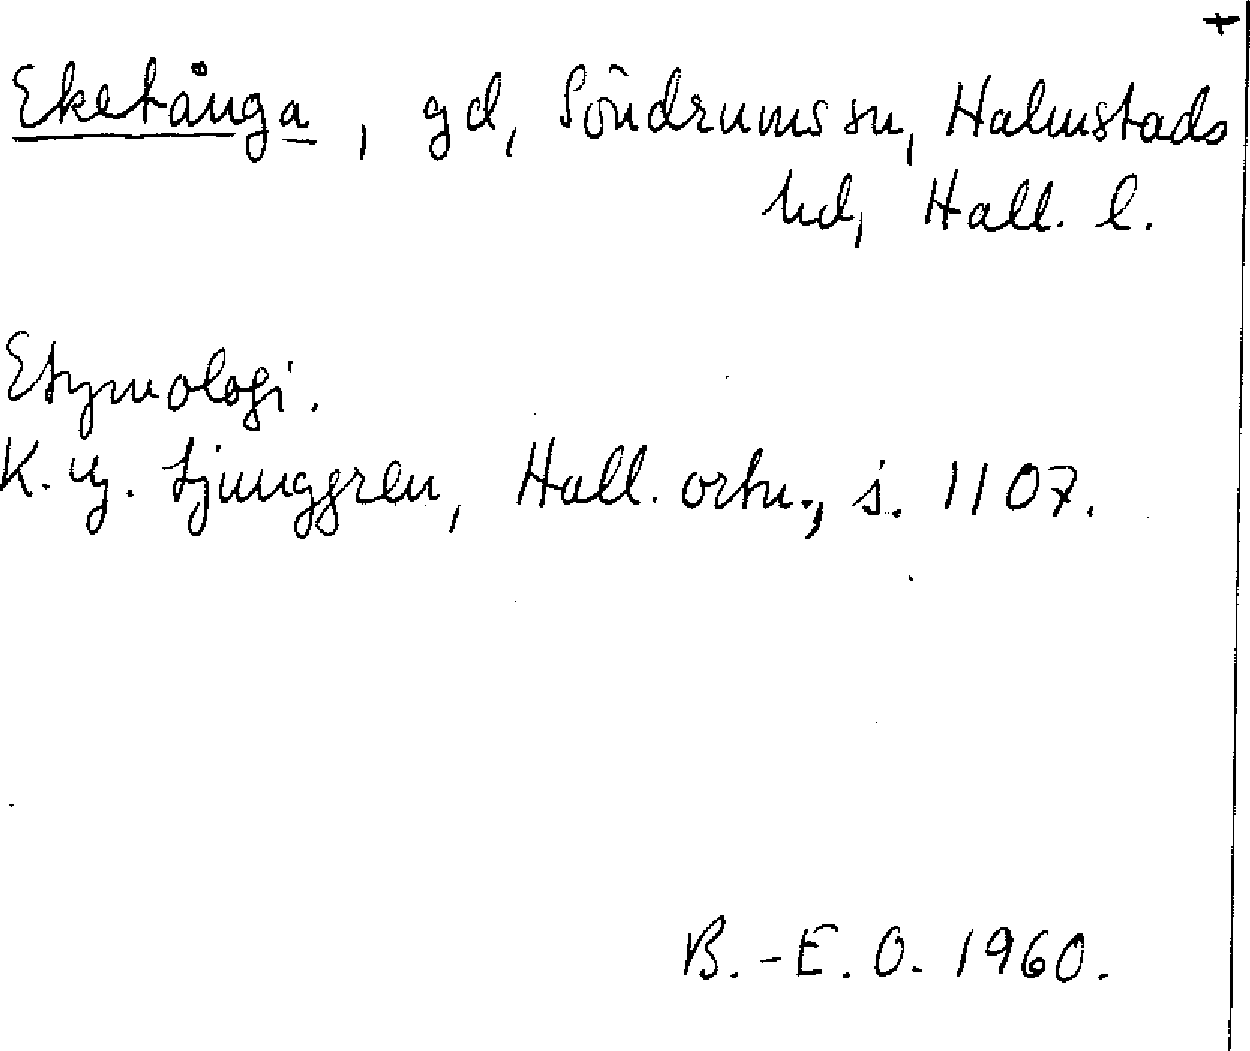 Eketånga, gd, Söndrums sn, Halmstads
hd, Hall. l.
Etymologi.
K. G. Ljunggren, Hall. ortn., s. 1107.
B.-E. O. 1960.